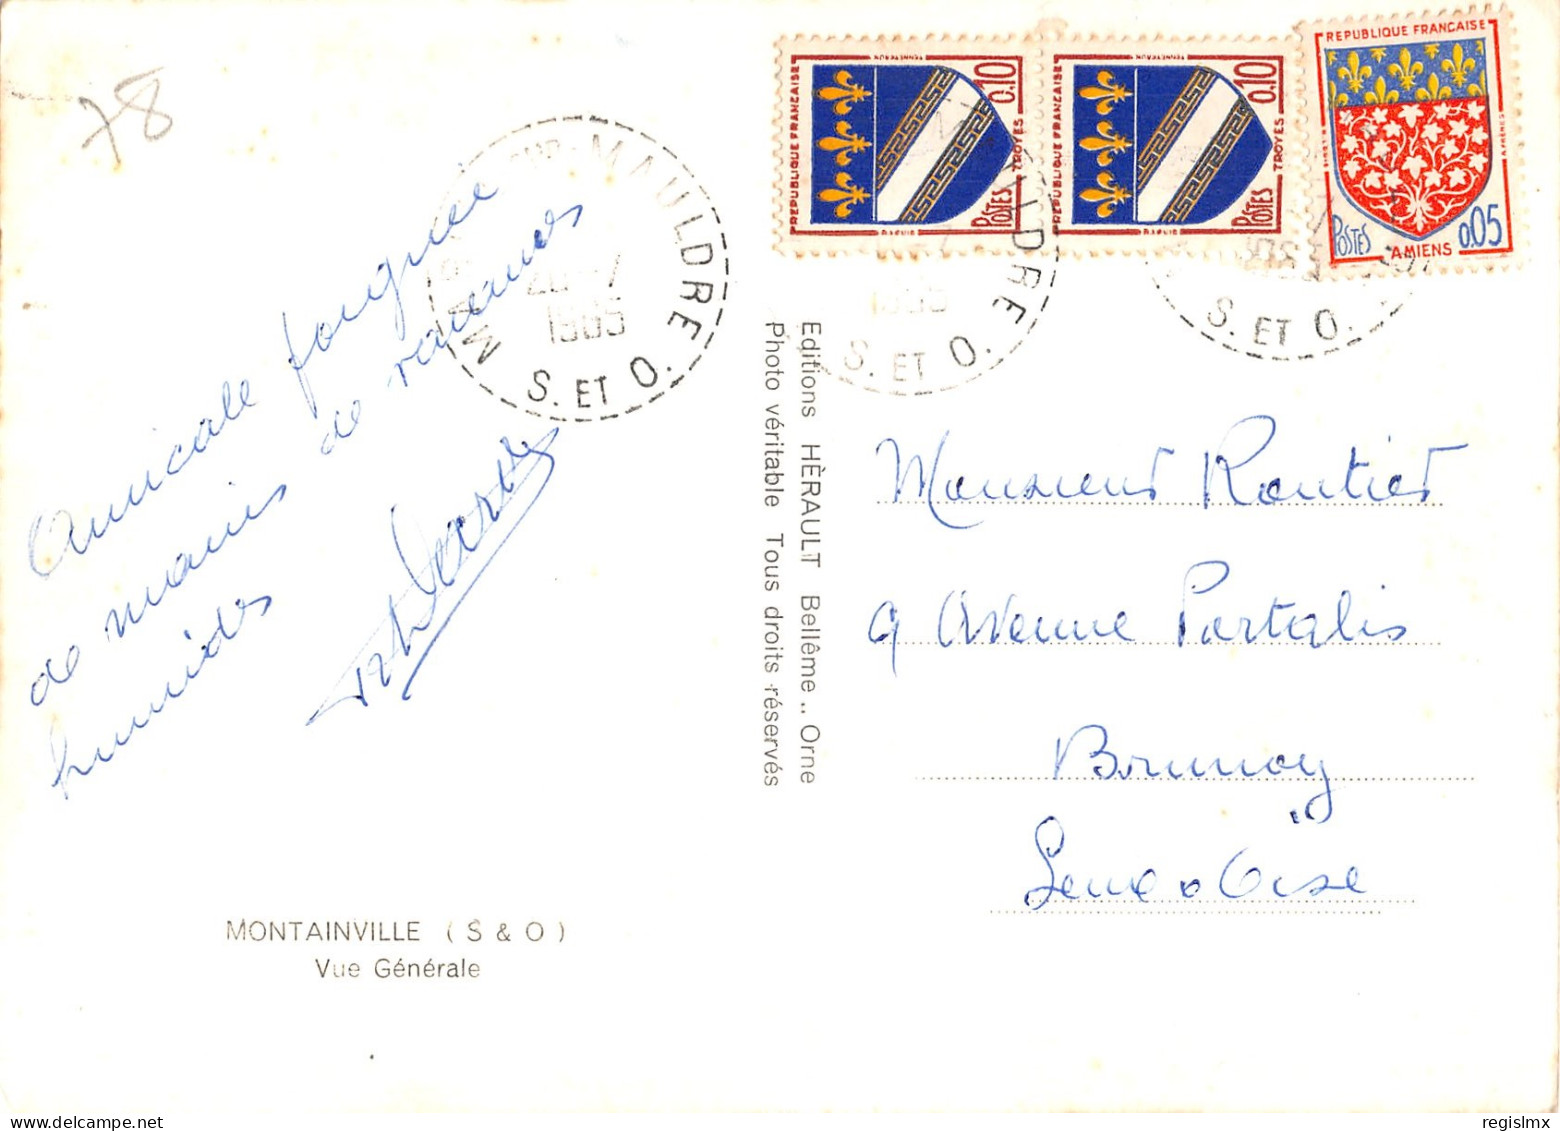 78
SUR-MAULDRE
20 -7
1965
S. ET O.
REPUBLIQUE FRANÇAISE
0,10
POSTES
TROYES
REPUBLIQUE FRANÇAISE
0,10
POSTES
TROYES
REPUBLIQUE FRANÇAISE
POSTES
AMIENS
0,05
LDRE
1965
S. ET O.
S. ET O.
Amicale
de mains
humides
de vacances
Editions HÈRAULT Bellême .. Orne
Photo véritable Tous droits réservés
Monsieur Rontier
9 Avenue Portalis
Brunoy
Seine & Oise
MONTAINVILLE ( S & O )
Vue Générale
regislmx